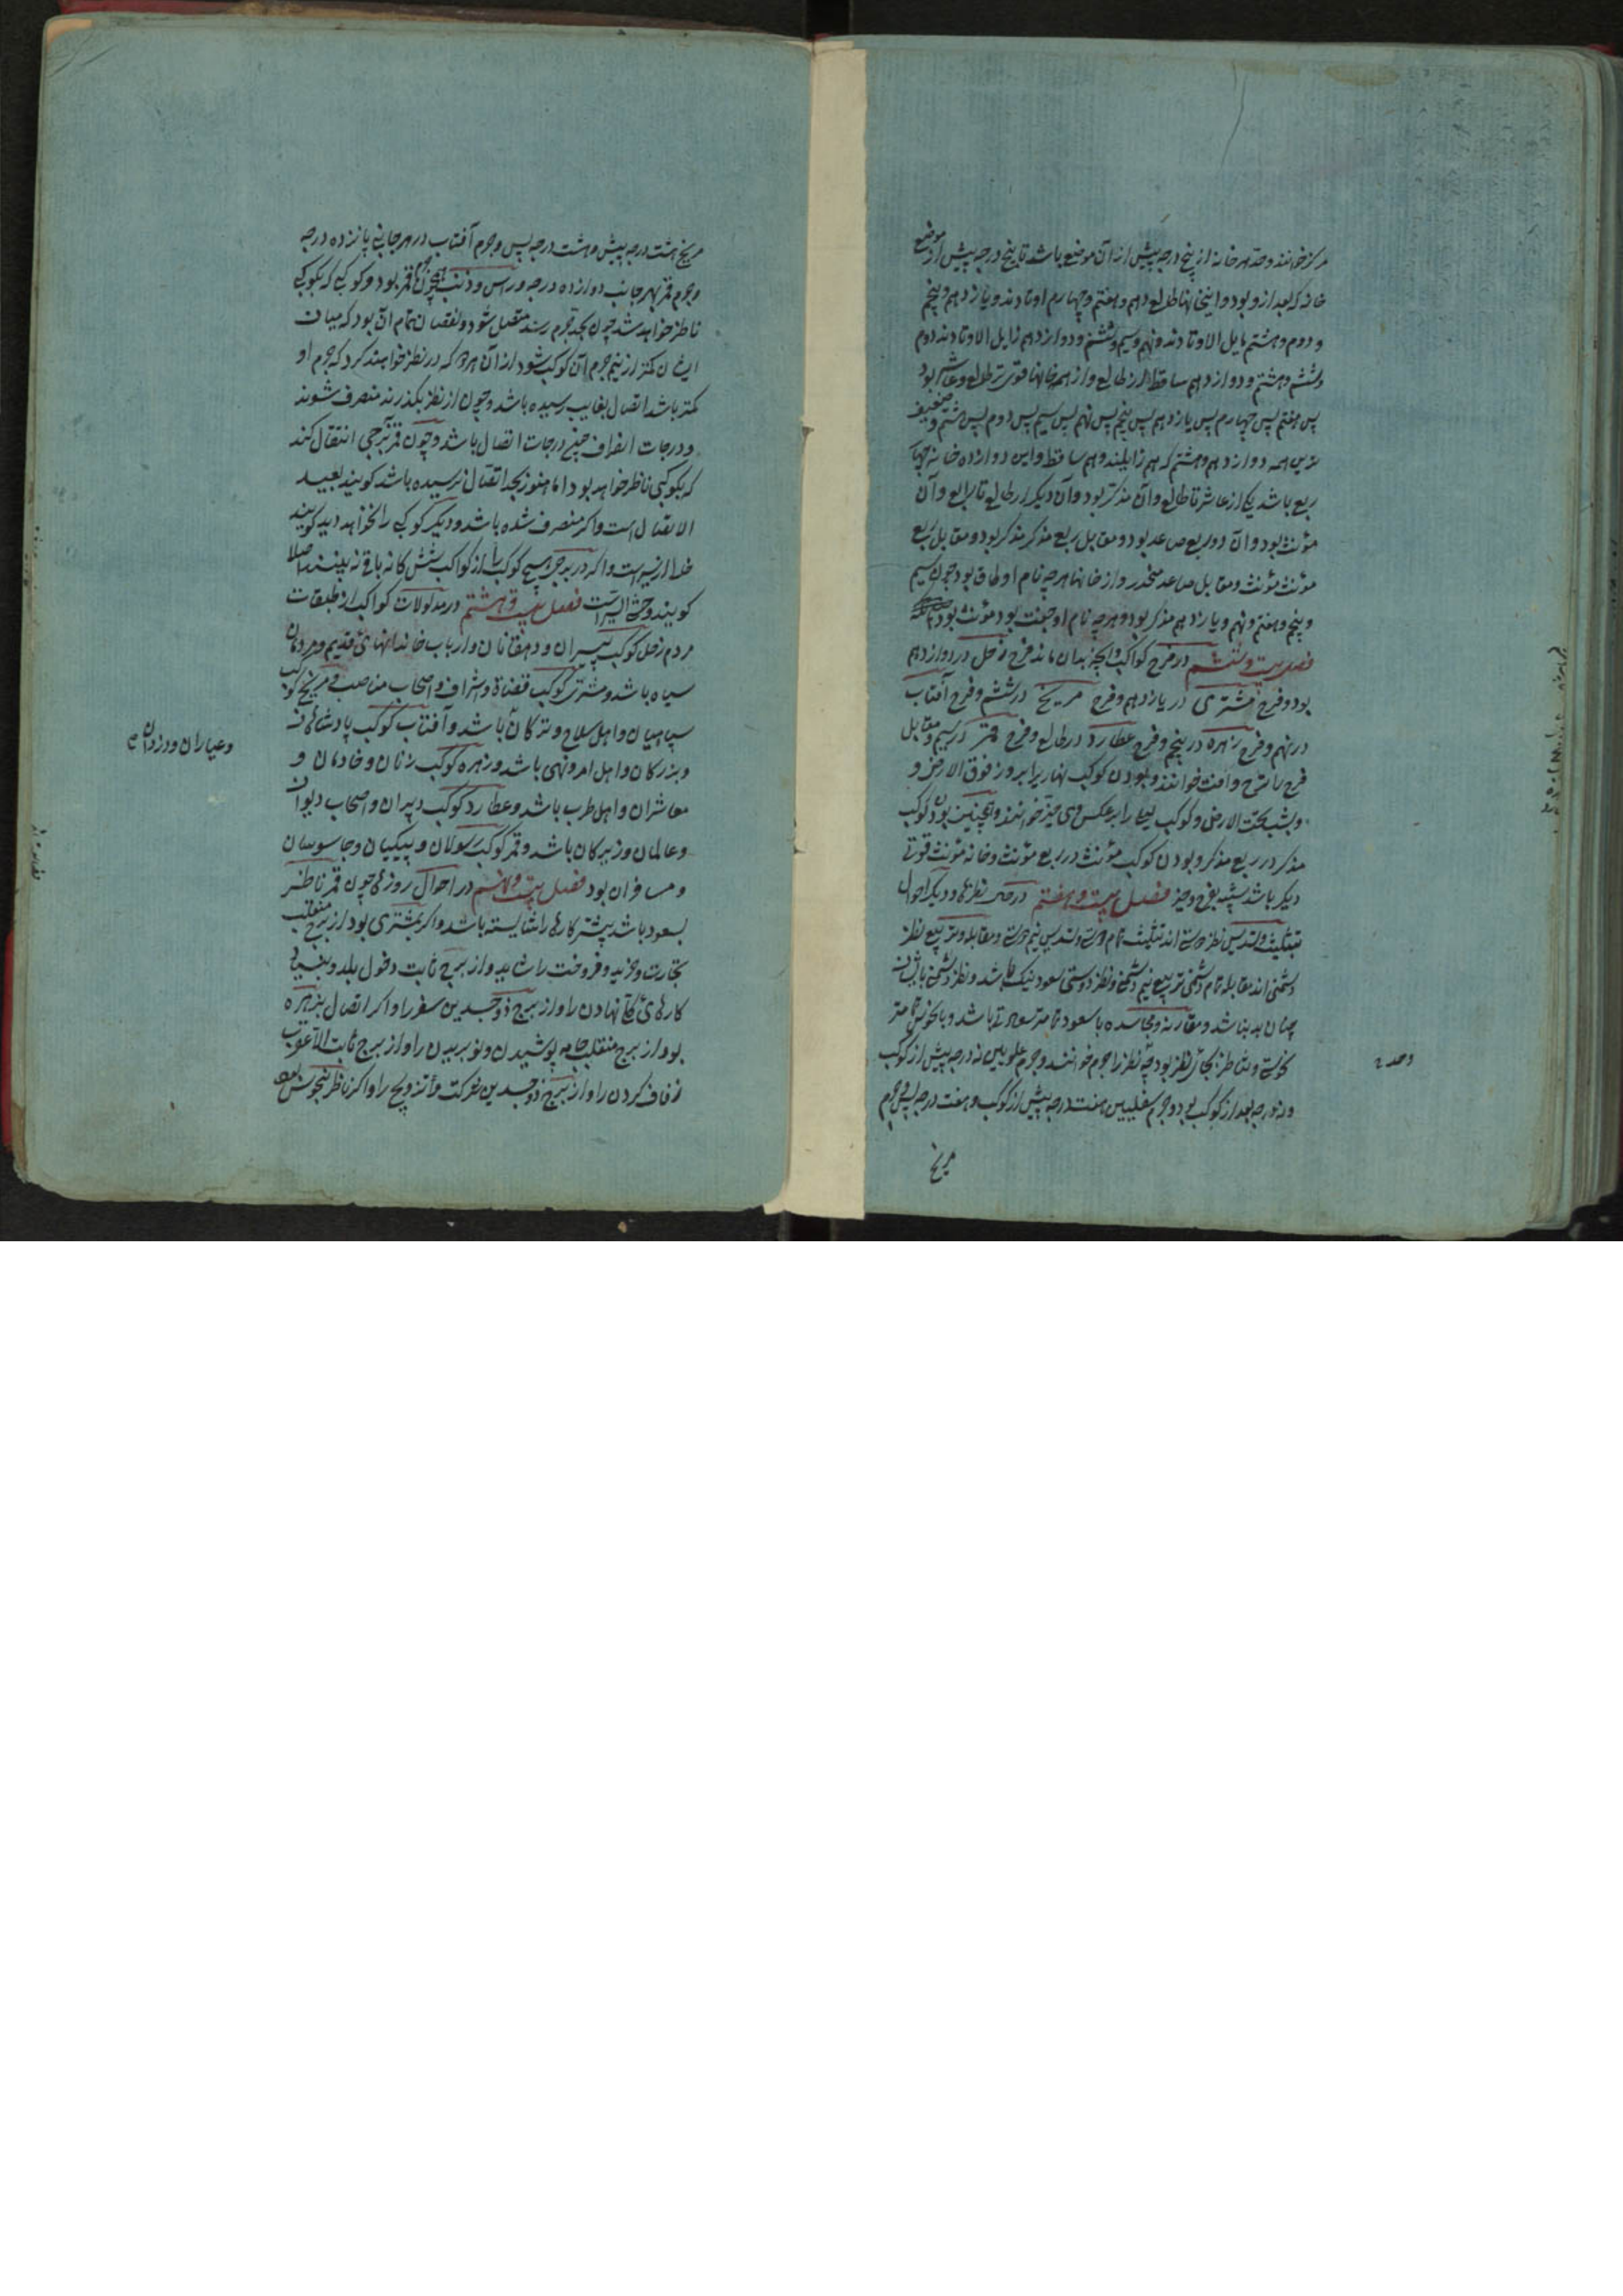 مرکز خوانند و حد هر خانه از پنج درجه پیش از آن موضع باشد تا پنج درجه پیش از موضع
خانه که بعد ازو بود و این خانها طالع و دهم و هفتم و چهارم اوتادند و یازدهم و پنجم
و دوم و هشتم مایل الاوتادند و نهم و سیم و ششم و دوازدهم زایل الاوتادند دوم
و ششم و هشتم و دوازدهم ساقط از طالع و از همه خانها قوی تر طالع و عاشر بود
پس هفتم پس چهارم پس یازدهم پس پنجم پس نهم پس سیم پس دوم پس ششم و ضعیف
ترین همه دوازدهم و هشتم که هم زایلند و هم ساقط و این دوازده خانه چهار
ربع باشد یکی از عاشر تا طالع و آن مذکر بود و آن دیگر از طالع تا رابع و آن
مؤنث بود و آن دو ربع صاعد بود و مقابل ربع مذکر مذکر بود و مقابل ربع
مؤنث مؤنث و مقابل صاعد منحدر و از خانها هرچه نام او طاق بود چون سیم
و پنجم و هفتم و نهم و یازدهم مذکر بود و هرچه نام او جفت بود مؤنث بود
فصل بیست و ششم در فرح کواکب و آنچه بدان ماند فرح زحل در دوازدهم
بود و فرح مشتری در یازدهم و فرح مریخ در ششم و فرح آفتاب
در نهم و فرح زهره در پنجم و فرح عطارد در طالع و فرح قمر در سیم و مقابل
فرح را ترح و آفت خوانند و بودن کوکب نهاریرا بروز فوق الارض و
بشب تحت الارض و کوکب لیلی را بر عکس وی حیز خوانند و همچنین بودن کوکب
مذکر در ربع مذکر و بودن کوکب مؤنث در ربع مؤنث و خانه مؤنث قوتی
دیگر باشد شبیه بفرح و حیز فصل بیست و هفتم در نظرها و دیگر احوال
تثلیث و تسدیس نظر دوستی اند تثلیث تمام دوستی و تسدیس نیم دوستی و مقابله و تربیع نظر
دشمنی اند مقابله تمام دشمنی تربیع نیم دشمنی و نظر دوستی سعود نیک باشد و نظر دشمنی با ایشان
چنان بد نباشد و مقارنه و مجاسده با سعود تمامتر سعادتی باشد و با نحوس تمامتر
نحوستی و تناظر بجای نظر بود چه نظر را جرم خوانند و جرم علویین نه درجه پیش از کوکب
و نه درجه بعد از کوکب بود و جرم سفلیین هفت درجه پیش از کوکب و هفت درجه پس و جرم
مریخ
مریخ هشت درجه پیش و هشت درجه پس و جرم آفتاب در هر جانبی پانزده درجه
و جرم قمر بهر جانب دوازده درجه و راس و ذنب همچون جرم قمر بود و کوکبی که بکوکبی
ناظر خواهد شد چون بحد جرم رسد متصل شود و نقصان تمام آن بود که میان
ایشان کمتر از نیم جرم آن کوکب شود از آن هر دو که در نظر خواهند کرد که جرم او
کمتر باشد اتصال بغایت رسیده باشد و چون از نظر بگذرند منصرف شوند
و درجات انصراف همچند درجات اتصال باشد و چون قمر ببرجی انتقال کند
که بکوکبی ناظر خواهد بود اما هنوز بحد اتصال نرسیده باشد گویند بعید
الاتصال است و اگر منصرف شده باشد و دیگر کوکبی را نخواهد دید گویند
خالی السیر است و اگر در برجی هیچ کوکب را از کواکب شش گانه باقی نه بینند اصلا
گویند وحشی السیر است فصل بیست و هشتم در مدلولات کواکب از طبقات
مردم زحل کوکب پیران و دهقانان و ارباب خاندانهای قدیم و مردمان
سیاه باشد و مشتری کوکب قضاة و اشراف و اصحاب مناصب و مریخ کوکب
سپاهیان و اهل سلاح و ترکان باشد و آفتاب کوکب پادشاهان
و بزرگان و اهل امر و نهی باشد و زهره کوکب زنان و خادمان و
معاشران و اهل طرب باشد و عطارد کوکب دبیران و اصحاب دیوان
و عالمان و زیرکان باشد و قمر کوکب رسولان و پیکیان و جاسوسان
و مسافران بود فصل بیست و نهم در احوال روزها چون قمر ناظر
بسعود باشد بیشتر کارها را شایسته باشد و اگر بمشتری بود از برج منقلب
تجارت و خرید و فروخت را شاید و از برج ثابت دخول بلد و بنیاد
کارهای نهادن را و از برج ذو جسدین سفر را و اگر اتصال بزهره
بود از برج منقلب جامه پوشیدن و نو بریدن را و از برج ثابت
زفاف کردن را و از برج ذو جسدین شرکت و تزویج را و اگر ناظر بنحوس بود
وعیاران و دزدان